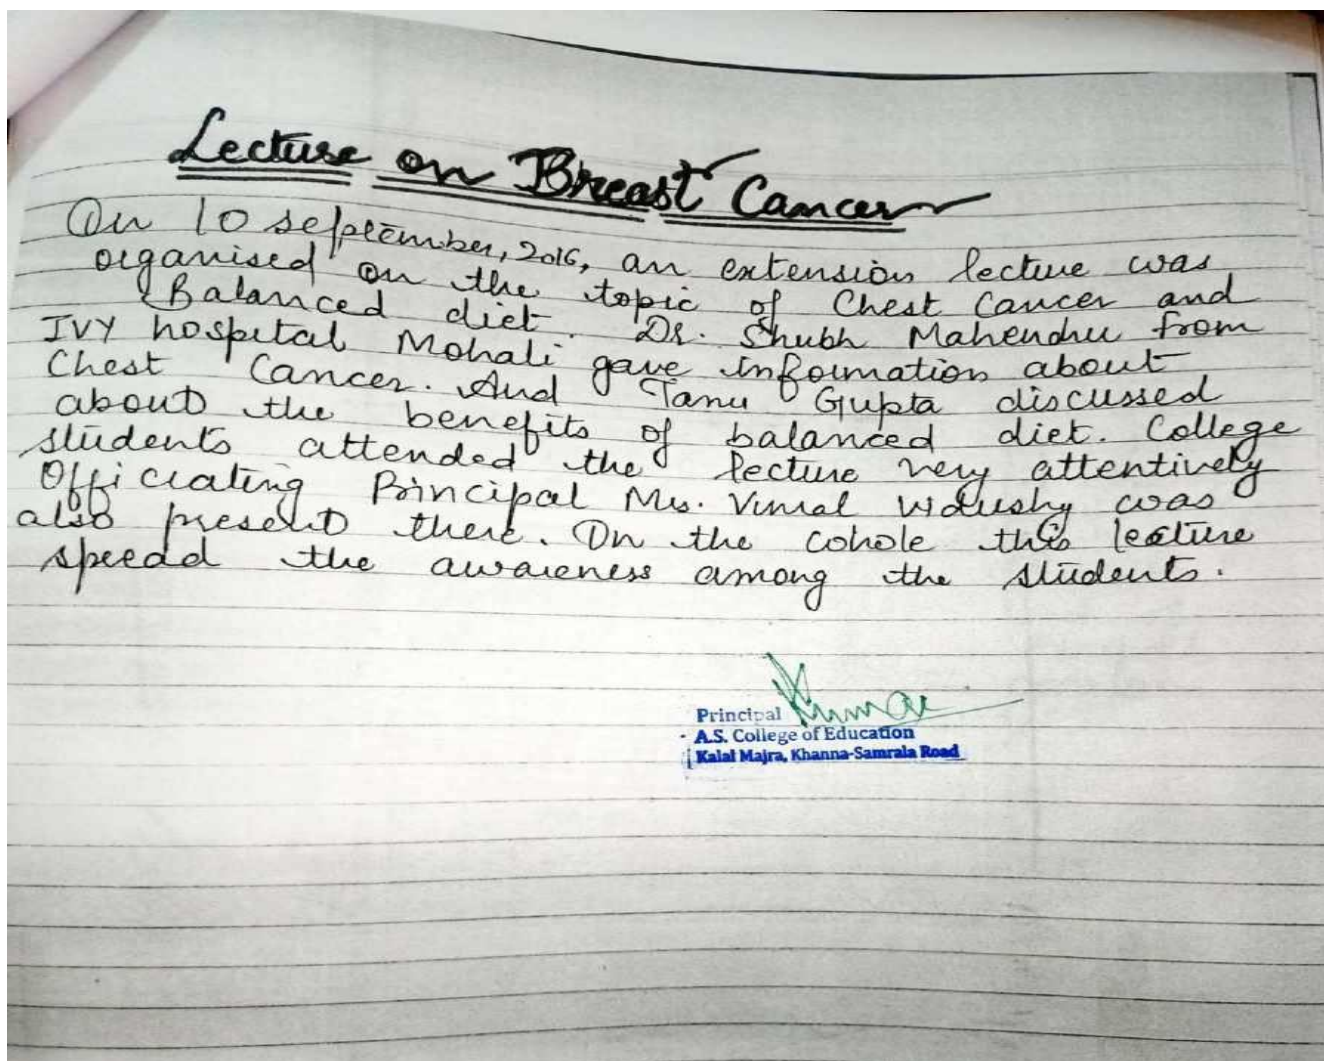 Lecture on Breast Cancer
On 10 september, 2016, an extension lecture was
organised on the topic of Chest Cancer and
Balanced diet. Dr. Shubh Mahendru from
IVY hospital Mohali gave information about
Chest Cancer. And Tanu Gupta discussed
about the benefits of balanced diet. College
students attended the lecture very attentively
Officiating Principal Ms. Vimal vidushy was
also present there. On the whole this lecture
spread the awareness among the students.
Principal Kumar
A.S. College of Education
Kalal Majra, Khanna-Samrala Road